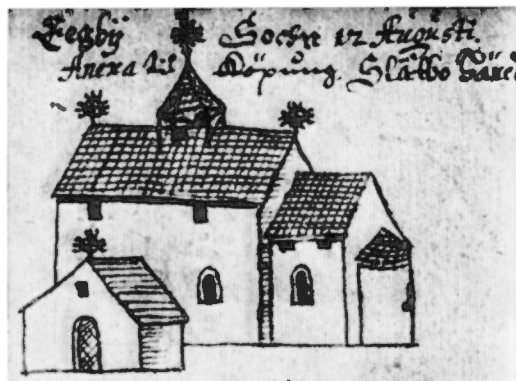 Eegbÿ Sochn 12 Augusti.
Anexa til Köping. Slätbo